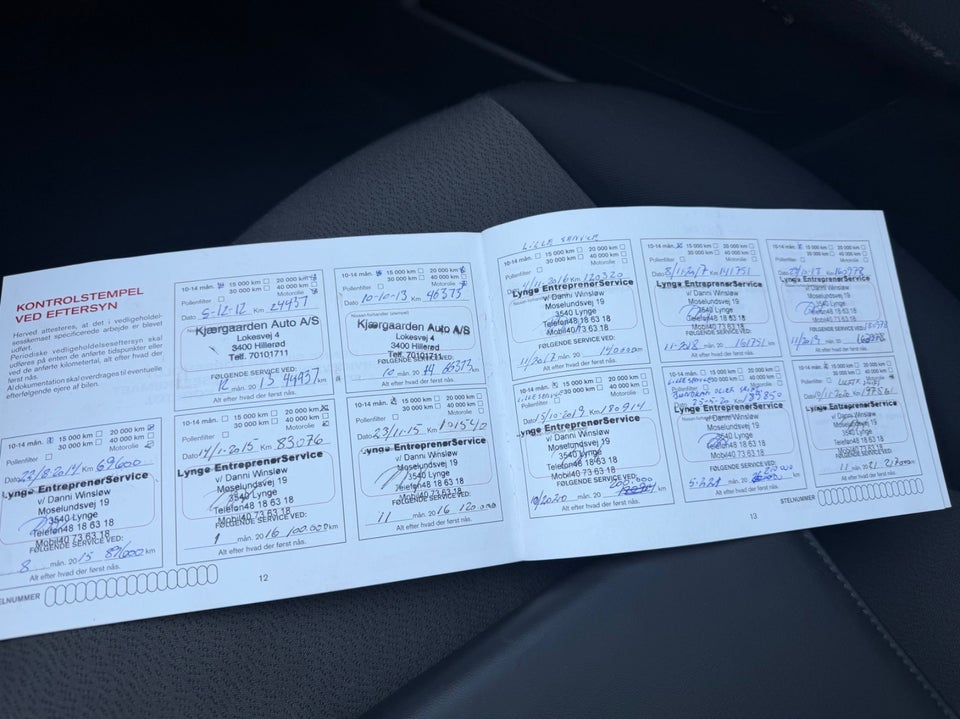 KONTROLSTEMPEL
VED EFTERSYN
Herved attesteres, at det i vedligehold-
sesskemaet specificerede arbejde er blevet
udført.
Periodiske vedligeholdelseseftersyn skal
udføres på enten de anførte tidspunkter eller
ved de anførte kilometertal, alt efter hvad der
først nås.
Al dokumentation skal overdrages til eventuelle
efterfølgende ejere af bilen.
10-14 mån. 15 000 km 20 000 km
30 000 km 40 000 km
Pollenfilter Motorolie
Dato 5-12-12 Km 24437
Kjærgaarden Auto A/S
Lokesvej 4
3400 Hillerød
Telf. 70101711
FØLGENDE SERVICE VED:
12 mån. 20 13 44437 km
Alt efter hvad der først nås.
10-14 mån. 15 000 km 20 000 km
30 000 km 40 000 km
Pollenfilter Motorolie
Dato 10-10-13 Km 46375
Kjærgaarden Auto A/S
Lokesvej 4
3400 Hillerød
Telf. 70101711
FØLGENDE SERVICE VED:
10 mån. 20 14 66375 km
Alt efter hvad der først nås.
10-14 mån. 15 000 km 20 000 km
30 000 km 40 000 km
Pollenfilter Motorolie
Dato 22/8-2014 Km 69600
Lynge EntreprenørService
v/ Danni Winsløw
Moselundsvej 19
3540 Lynge
Telefon48 18 63 18
Mobil40 73 63 18
FØLGENDE SERVICE VED:
8 mån. 20 15 89600 km
Alt efter hvad der først nås.
10-14 mån. 15 000 km 20 000 km
30 000 km 40 000 km
Pollenfilter Motorolie
Dato 14/1-2015 Km 83076
Lynge EntreprenørService
v/ Danni Winsløw
Moselundsvej 19
3540 Lynge
Telefon48 18 63 18
Mobil40 73 63 18
FØLGENDE SERVICE VED:
1 mån. 20 16 100.000 km
Alt efter hvad der først nås.
10-14 mån. 15 000 km 20 000 km
30 000 km 40 000 km
Pollenfilter Motorolie
Dato 23/11-15 Km 101540
Lynge EntreprenørService
v/ Danni Winsløw
Moselundsvej 19
3540 Lynge
Telefon48 18 63 18
Mobil40 73 63 18
FØLGENDE SERVICE VED:
11 mån. 20 16 120.000 km
Alt efter hvad der først nås.
12
LILLE SERVICE
10-14 mån. 15 000 km 20 000 km
30 000 km 40 000 km
Pollenfilter Motorolie
2016 Km 120320
Lynge EntreprenørService
v/ Danni Winsløw
Moselundsvej 19
3540 Lynge
Telefon48 18 63 18
Mobil40 73 63 18
FØLGENDE SERVICE VED:
11/2017 mån. 20 140000 km
Alt efter hvad der først nås.
10-14 mån. 15 000 km 20 000 km
30 000 km 40 000 km
Pollenfilter Motorolie
Dato 8/11-2017 Km 141751
Lynge EntreprenørService
v/ Danni Winsløw
Moselundsvej 19
3540 Lynge
Telefon48 18 63 18
Mobil40 73 63 18
FØLGENDE SERVICE VED:
11-2018 mån. 20 161751 km
Alt efter hvad der først nås.
10-14 mån. 15 000 km 20 000 km
30 000 km 40 000 km
Pollenfilter Motorolie
Km 160978
Lynge EntreprenørService
v/ Danni Winsløw
Moselundsvej 19
3540 Lynge
Telefon48 18 63 18
Mobil40 73 63 18
FØLGENDE SERVICE VED:
11/2019 mån. 20
Alt efter hvad der først nås.
10-14 mån. 15 000 km 20 000 km
30 000 km 40 000 km
Pollenfilter Motorolie
Dato 15/10-2019 Km 180914
Lynge EntreprenørService
v/ Danni Winsløw
Moselundsvej 19
3540 Lynge
Telefon48 18 63 18
Mobil40 73 63 18
FØLGENDE SERVICE VED:
10/2020 mån. 20 200.000 km
Alt efter hvad der først nås.
10-14 mån. 15 000 km 20 000 km
LILLE SERVICE 30 000 km 40 000 km
Km 189850
Lynge EntreprenørService
v/ Danni Winsløw
Moselundsvej 19
3540 Lynge
Telefon48 18 63 18
Mobil40 73 63 18
FØLGENDE SERVICE VED:
mån. 20 km
Alt efter hvad der først nås.
10-14 mån. 15 000 km
30 000 km
Pollenfilter Motorolie
Lynge EntreprenørService
v/ Danni Winsløw
Moselundsvej 19
3540 Lynge
Telefon48 18 63 18
Mobil40 73 63 18
FØLGENDE SERVICE VED:
11 mån. 20 21 km
Alt efter hvad der først nås.
STELNUMMER
13